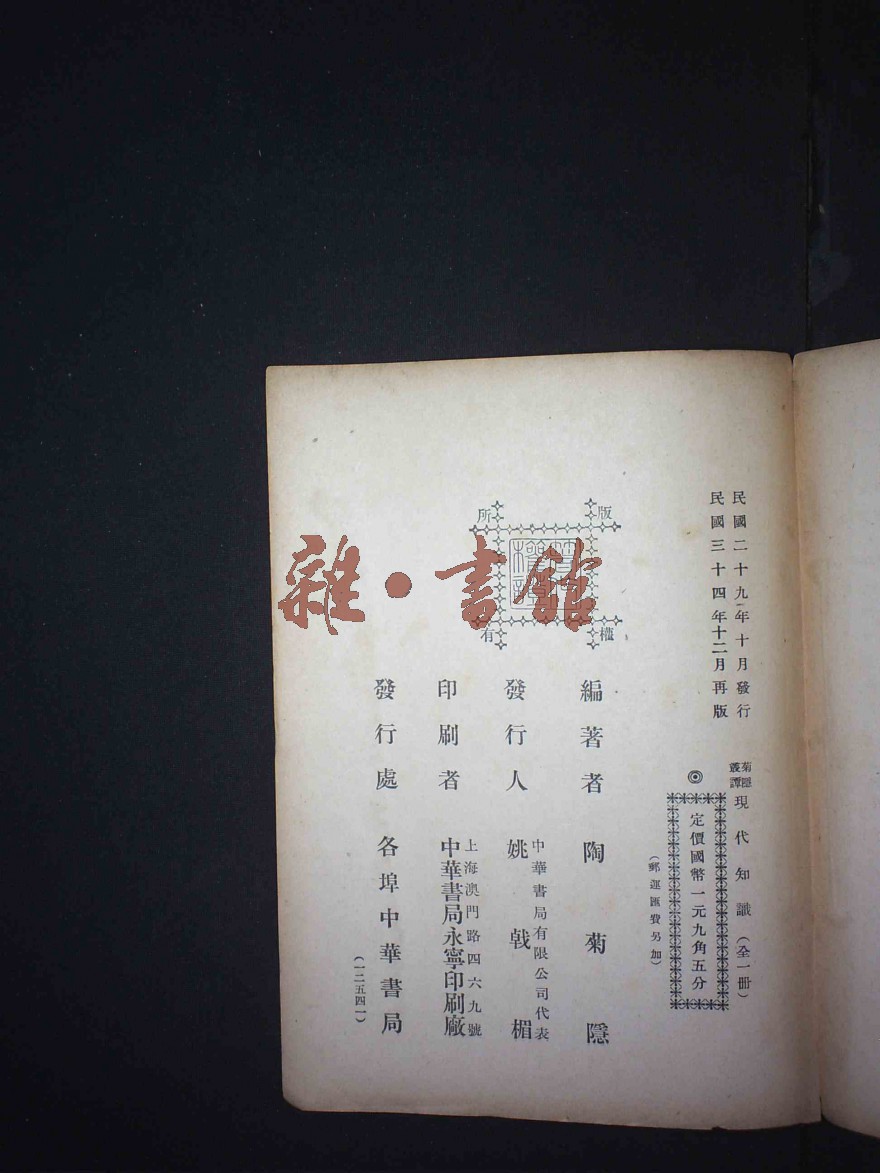 民國二十九年十月發行
民國三十四年十二月再版
菊隱叢譚
現代知識（全一册）
◎定價國幣一元九角五分
（郵運匯費另加）
版權所有
編著者 陶菊隱
發行人 中華書局有限公司代表 姚戟楣
印刷者 上海澳門路四六九號 中華書局永寧印刷廠
發行處 各埠中華書局
（一二五四一）
雜·書館